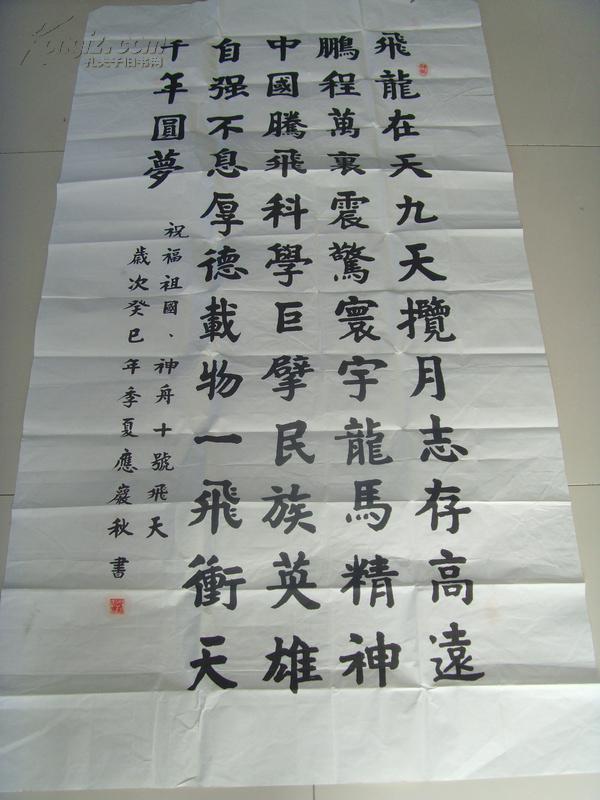 飛龍在天九天攬月志存高遠
鵬程萬裏震驚寰宇龍馬精神
中國騰飛科學巨擘民族英雄
自强不息厚德載物一飛衝天
千年圓夢
祝福祖國、神舟十號飛天
歲次癸巳年季夏應嚴秋書
孔夫子旧书网